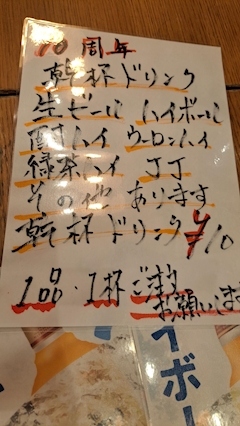 10周年
乾杯ドリンク
生ビール ハイボール
酎ハイ ウーロンハイ
緑茶ハイ JJ
その他 あります
乾杯ドリンク ¥10
1品・1杯ご注文
お願いします
イボー